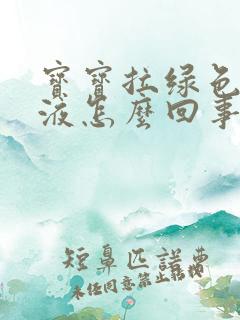 寶寶拉綠色
液怎麼回事
短鼻匹諾曹
未任同意禁止轉載